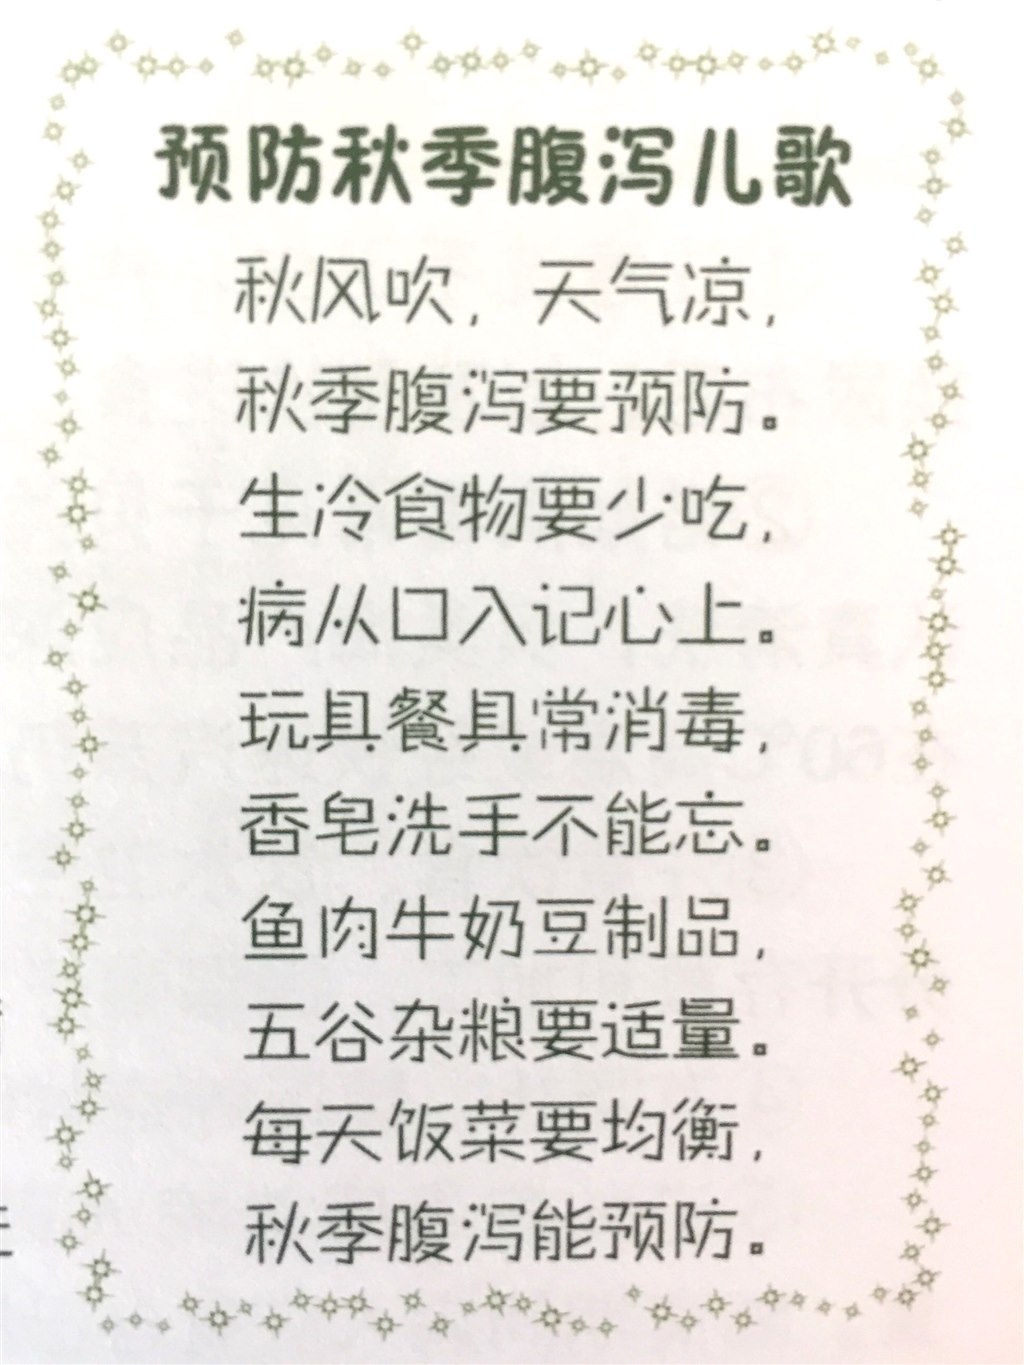 预防秋季腹泻儿歌
秋风吹，天气凉，
秋季腹泻要预防。
生冷食物要少吃，
病从口入记心上。
玩具餐具常消毒，
香皂洗手不能忘。
鱼肉牛奶豆制品，
五谷杂粮要适量。
每天饭菜要均衡，
秋季腹泻能预防。